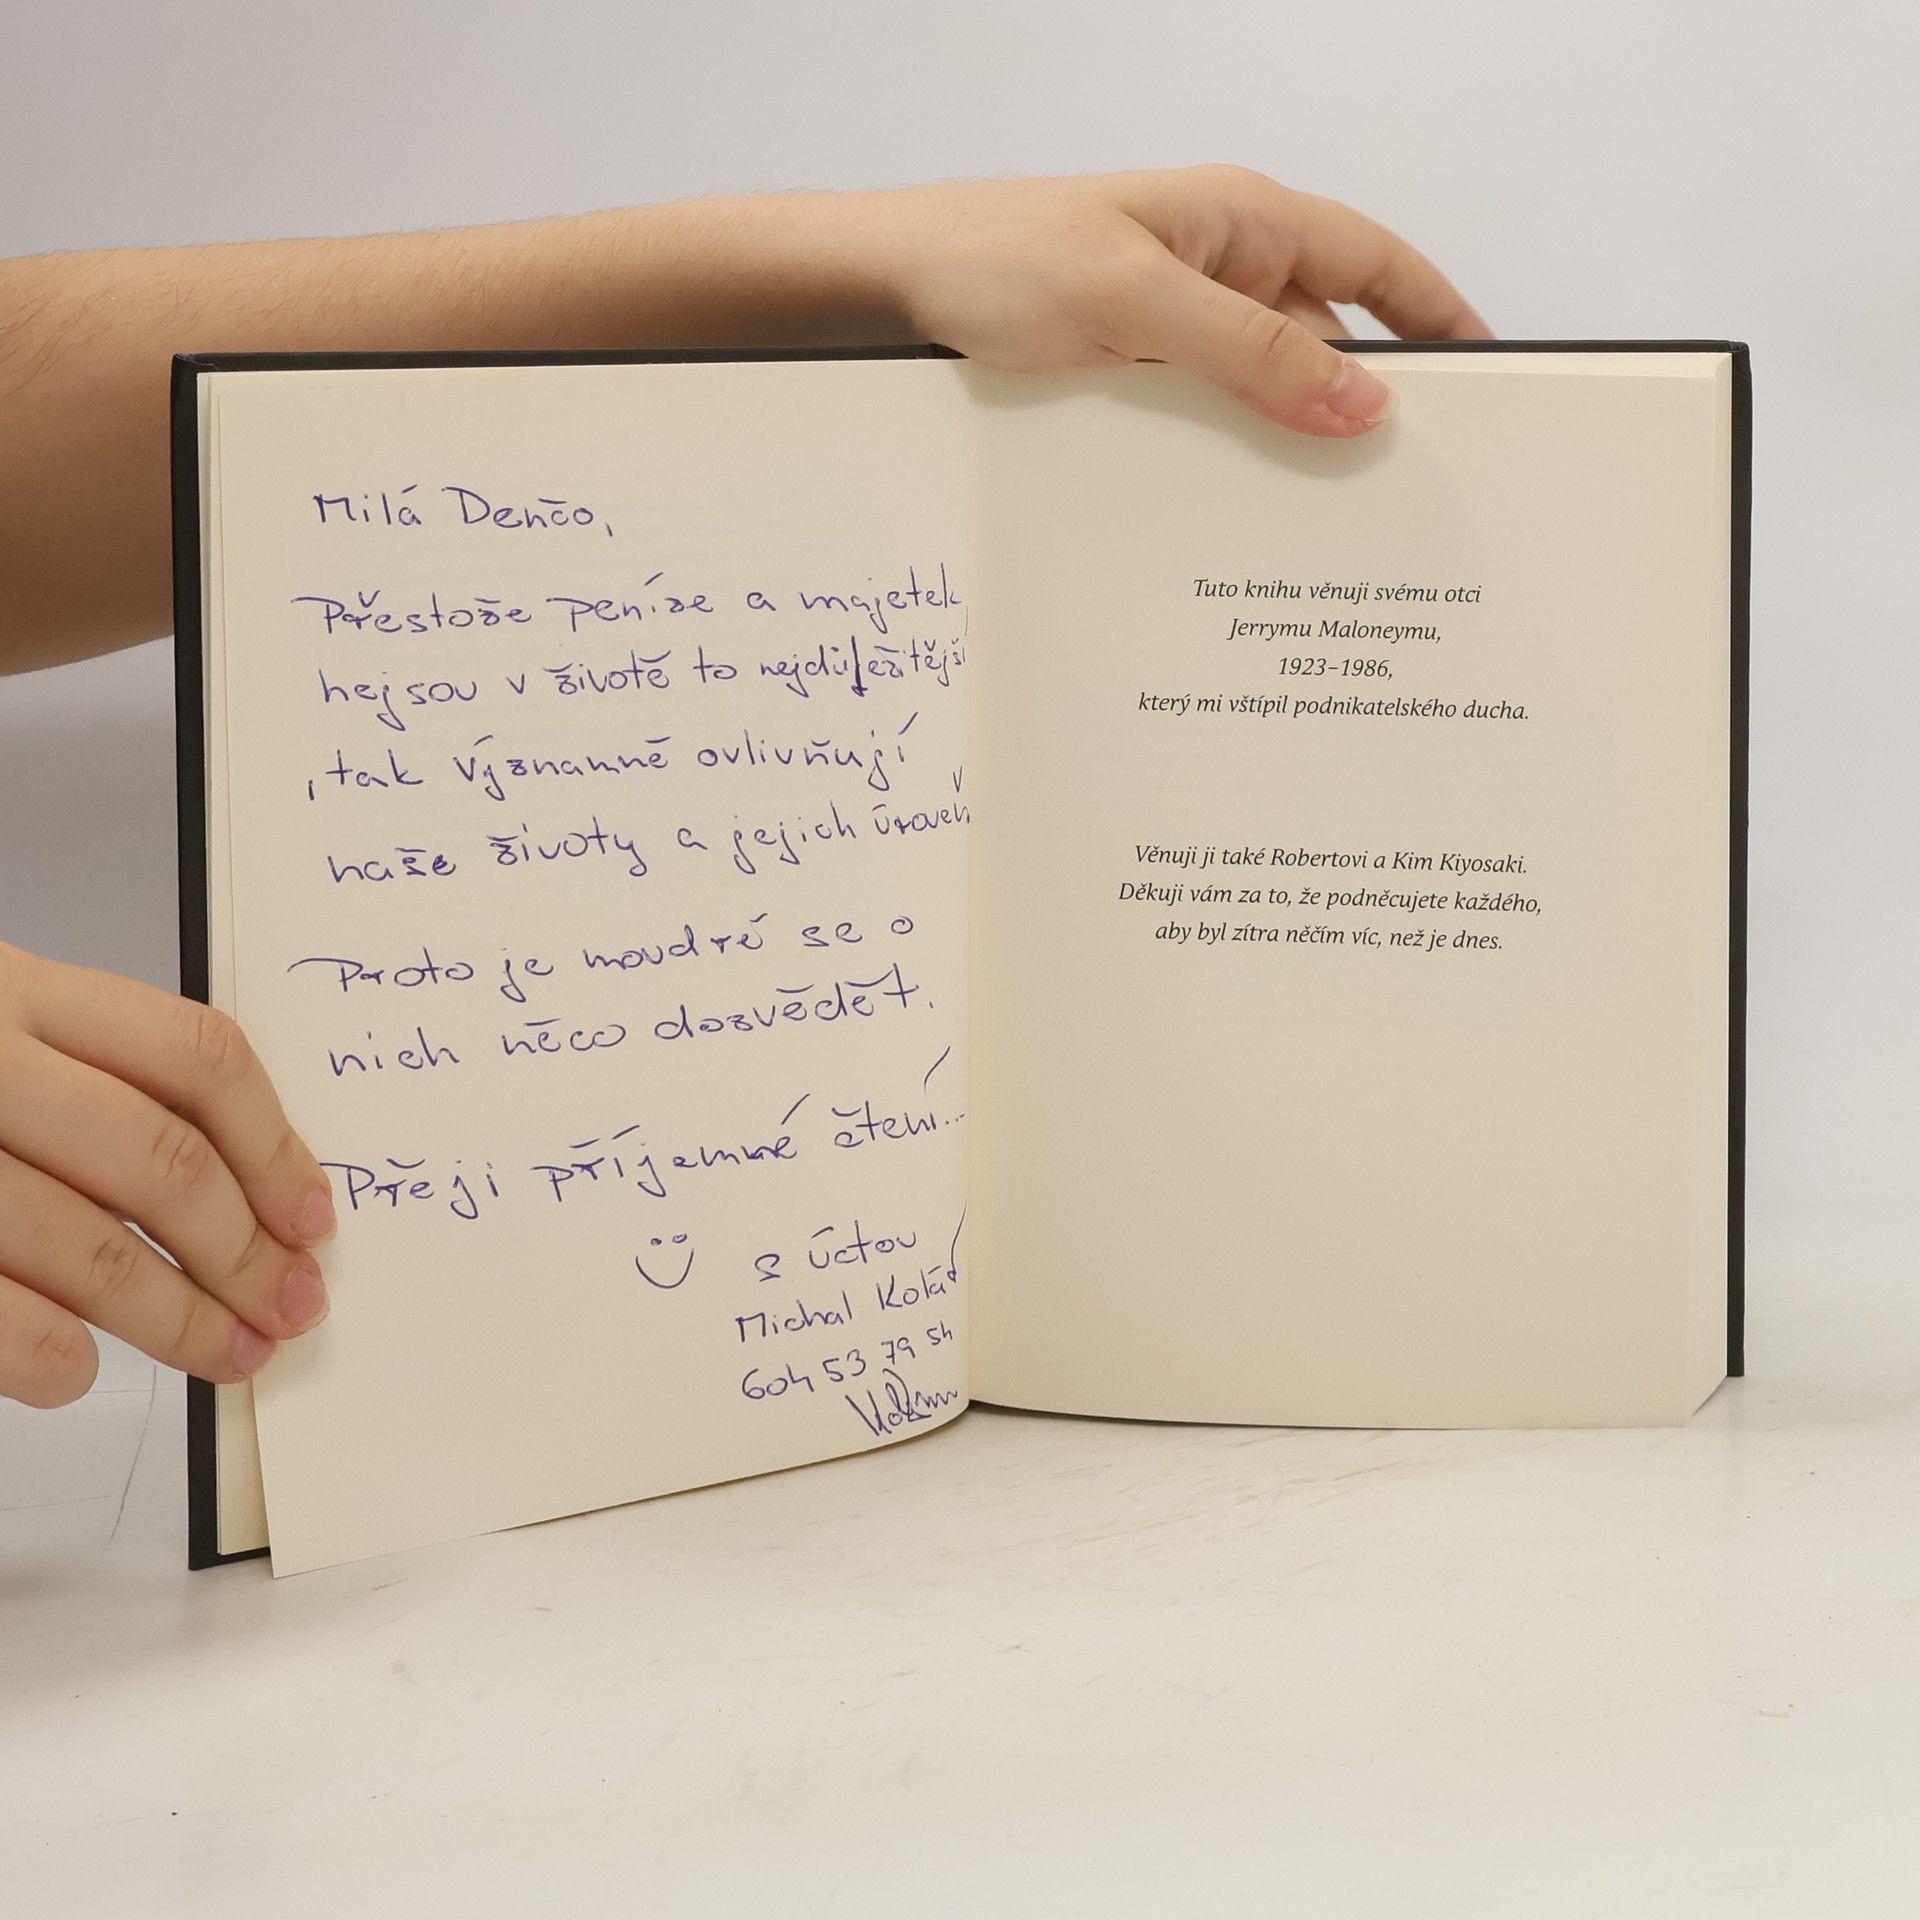 Milá Denčo,
Přestože peníze a majetek
nejsou v životě to nejdůležitější
, tak významně ovlivňují
naše životy a jejich úroveň
Proto je moudré se o
nich něco dozvědět.
Přeji příjemné čtení...
s úctou
Michal Kolář
604 53 79 54
Tuto knihu věnuji svému otci
Jerrymu Maloneymu,
1923–1986,
který mi vštípil podnikatelského ducha.
Věnuji ji také Robertovi a Kim Kiyosaki.
Děkuji vám za to, že podněcujete každého,
aby byl zítra něčím víc, než je dnes.